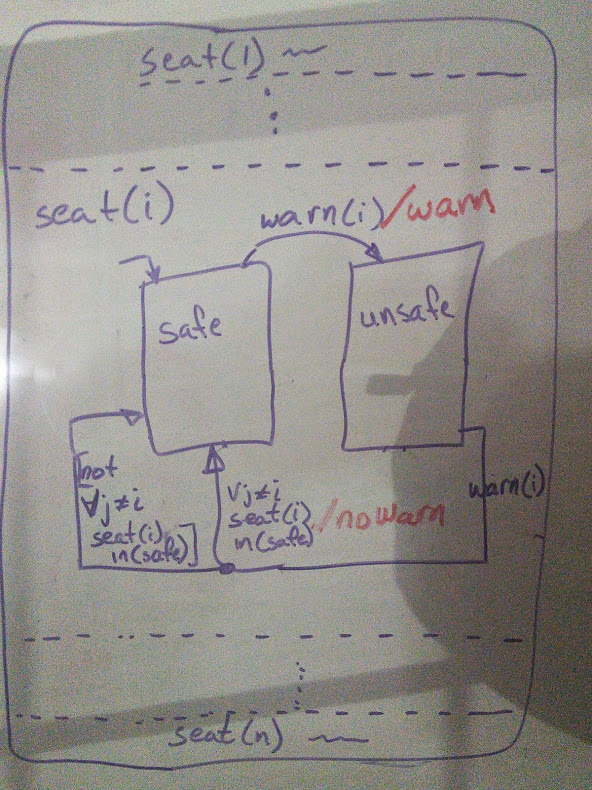 seat(1)
seat(i)
warn(i)/warn
safe
unsafe
[not
∀j≠i
seat(i)
in(safe)]
∀j≠i
seat(i)
in(safe)
/nowarn
warn(i)
seat(n)